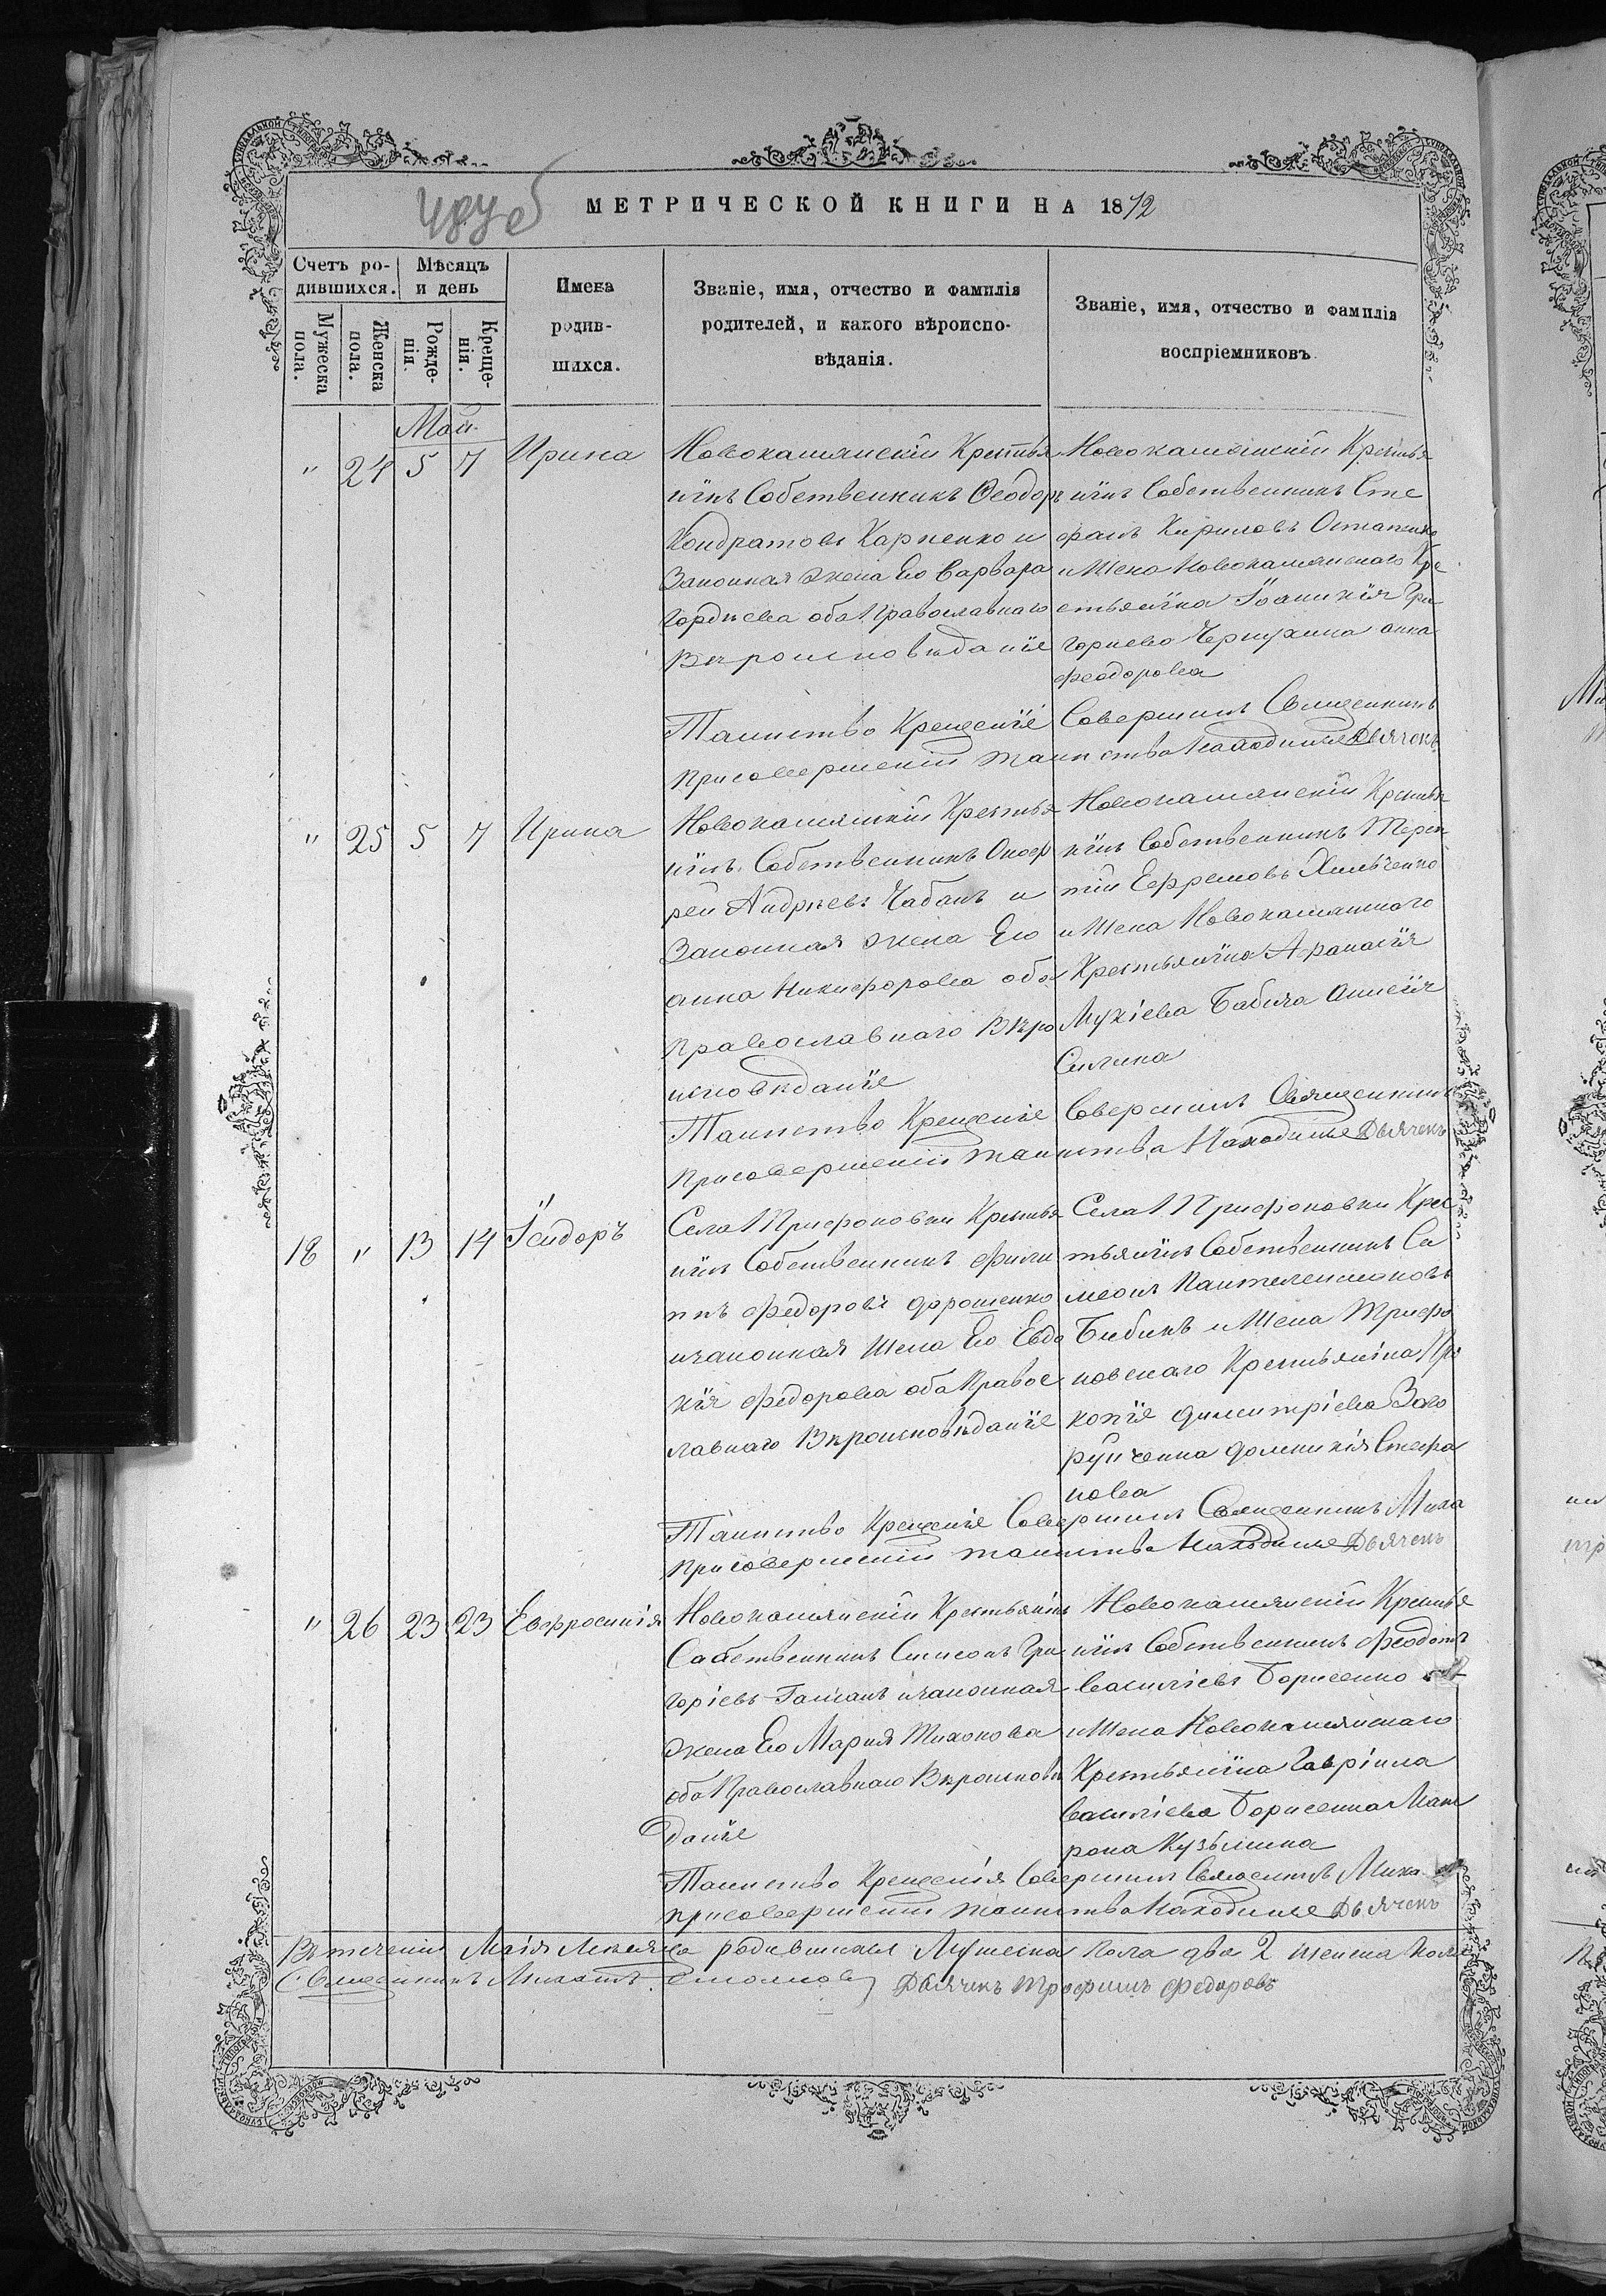 МЕТРИЧЕСКОЙ КНИГИ НА 1872
Счетъ ро-
дившихся.
Мѣсяцъ
и день
Мужеска
пола.
Женска
пола.
Рожде-
нія.
Креще-
нія.
Имена
родив-
шихся.
Званіе, имя, отчество и фамилія
родителей, и какого вѣроиспо-
вѣданія.
Званіе, имя, отчество и фамилія
воспріемниковъ
Май
" 24 5 7 Ирина
Новокамянскій Крестья
нінъ Собственникъ Ѳеодоръ
Кондратовъ Карпенко и
Законная жена Ево Варвара
Гордѣева оба Православнаго
Вѣроисповѣданіе
Новокамянскій Крестья
нінъ Собственникъ Сте
фанъ Кириловъ Остапенко
и Жена Новокамянскаго Кре
стьяніна Іоаникія Гри
горіево Чернухина анна
феодорова
Таинство Крещеніе Совершилъ Священникъ
присовершеніи таинства Находился Дьячекъ
" 25 5 7 Ирина
Новокамянскій Крестья
нінъ Собственникъ Оноф
рей Андрѣевъ Чабанъ и
Законная жена Ево
анна Никифорова оба
православнаго Вѣро
исповѣданіе
Новокамянскій Крестья
нінъ Собственникъ Терен
тій Ефремовъ Хильченко
и Жена Новокамянскаго
Крестьяніна Афанасія
Мукіева Бабича
Силина
Таинство Крещеніе Совершилъ Священникъ
присовершеніи таинства Находился Дьячекъ
18 " 13 14 Ісидоръ
Села Трифоновки Крестья
нінъ Собственникъ Фили
пъ Федоровъ дорошенко
изаконная Жена Ево Евдо
кія Федорова оба Правос
лавнаго Вѣроисповѣданіе
Села Трифоновки Крес
тьянінъ Собственникъ Си
меонъ Пантелеимоновъ
Бибикъ и Жена Трифо
новскаго Крестьяніна Про
копіе димитріева
домникія Стефа
нова
Таинство Крещеніе Совершилъ Священникъ Миха
присовершеніи таинства Находился Дьячекъ
" 26 23 23 Евфросинія
Новокамянскій Крестьянінъ
Собственникъ Симеонъ Гри
горіевъ Гайманъ изаконная
жена Ево Мария Тихонова
оба Православнаго Вѣроисповѣ
даніе
Новокамянскій Крестья
нінъ Собственникъ Феодотъ
Василіевъ Борисенко
и Жена Новокамянскаго
Крестьяніна Гавріила
Василіева Борисенка Мат
рона Кузьмина
Таинство Крещенія Совершилъ Священникъ Миха
присовершеніи таинства Находился Дьячекъ
Въ теченіи Маія Мѣсяца родившихся Мужеска пола два 2 женска пола
Священникъ Михаилъ Дьячекъ Трофимъ Федоровъ